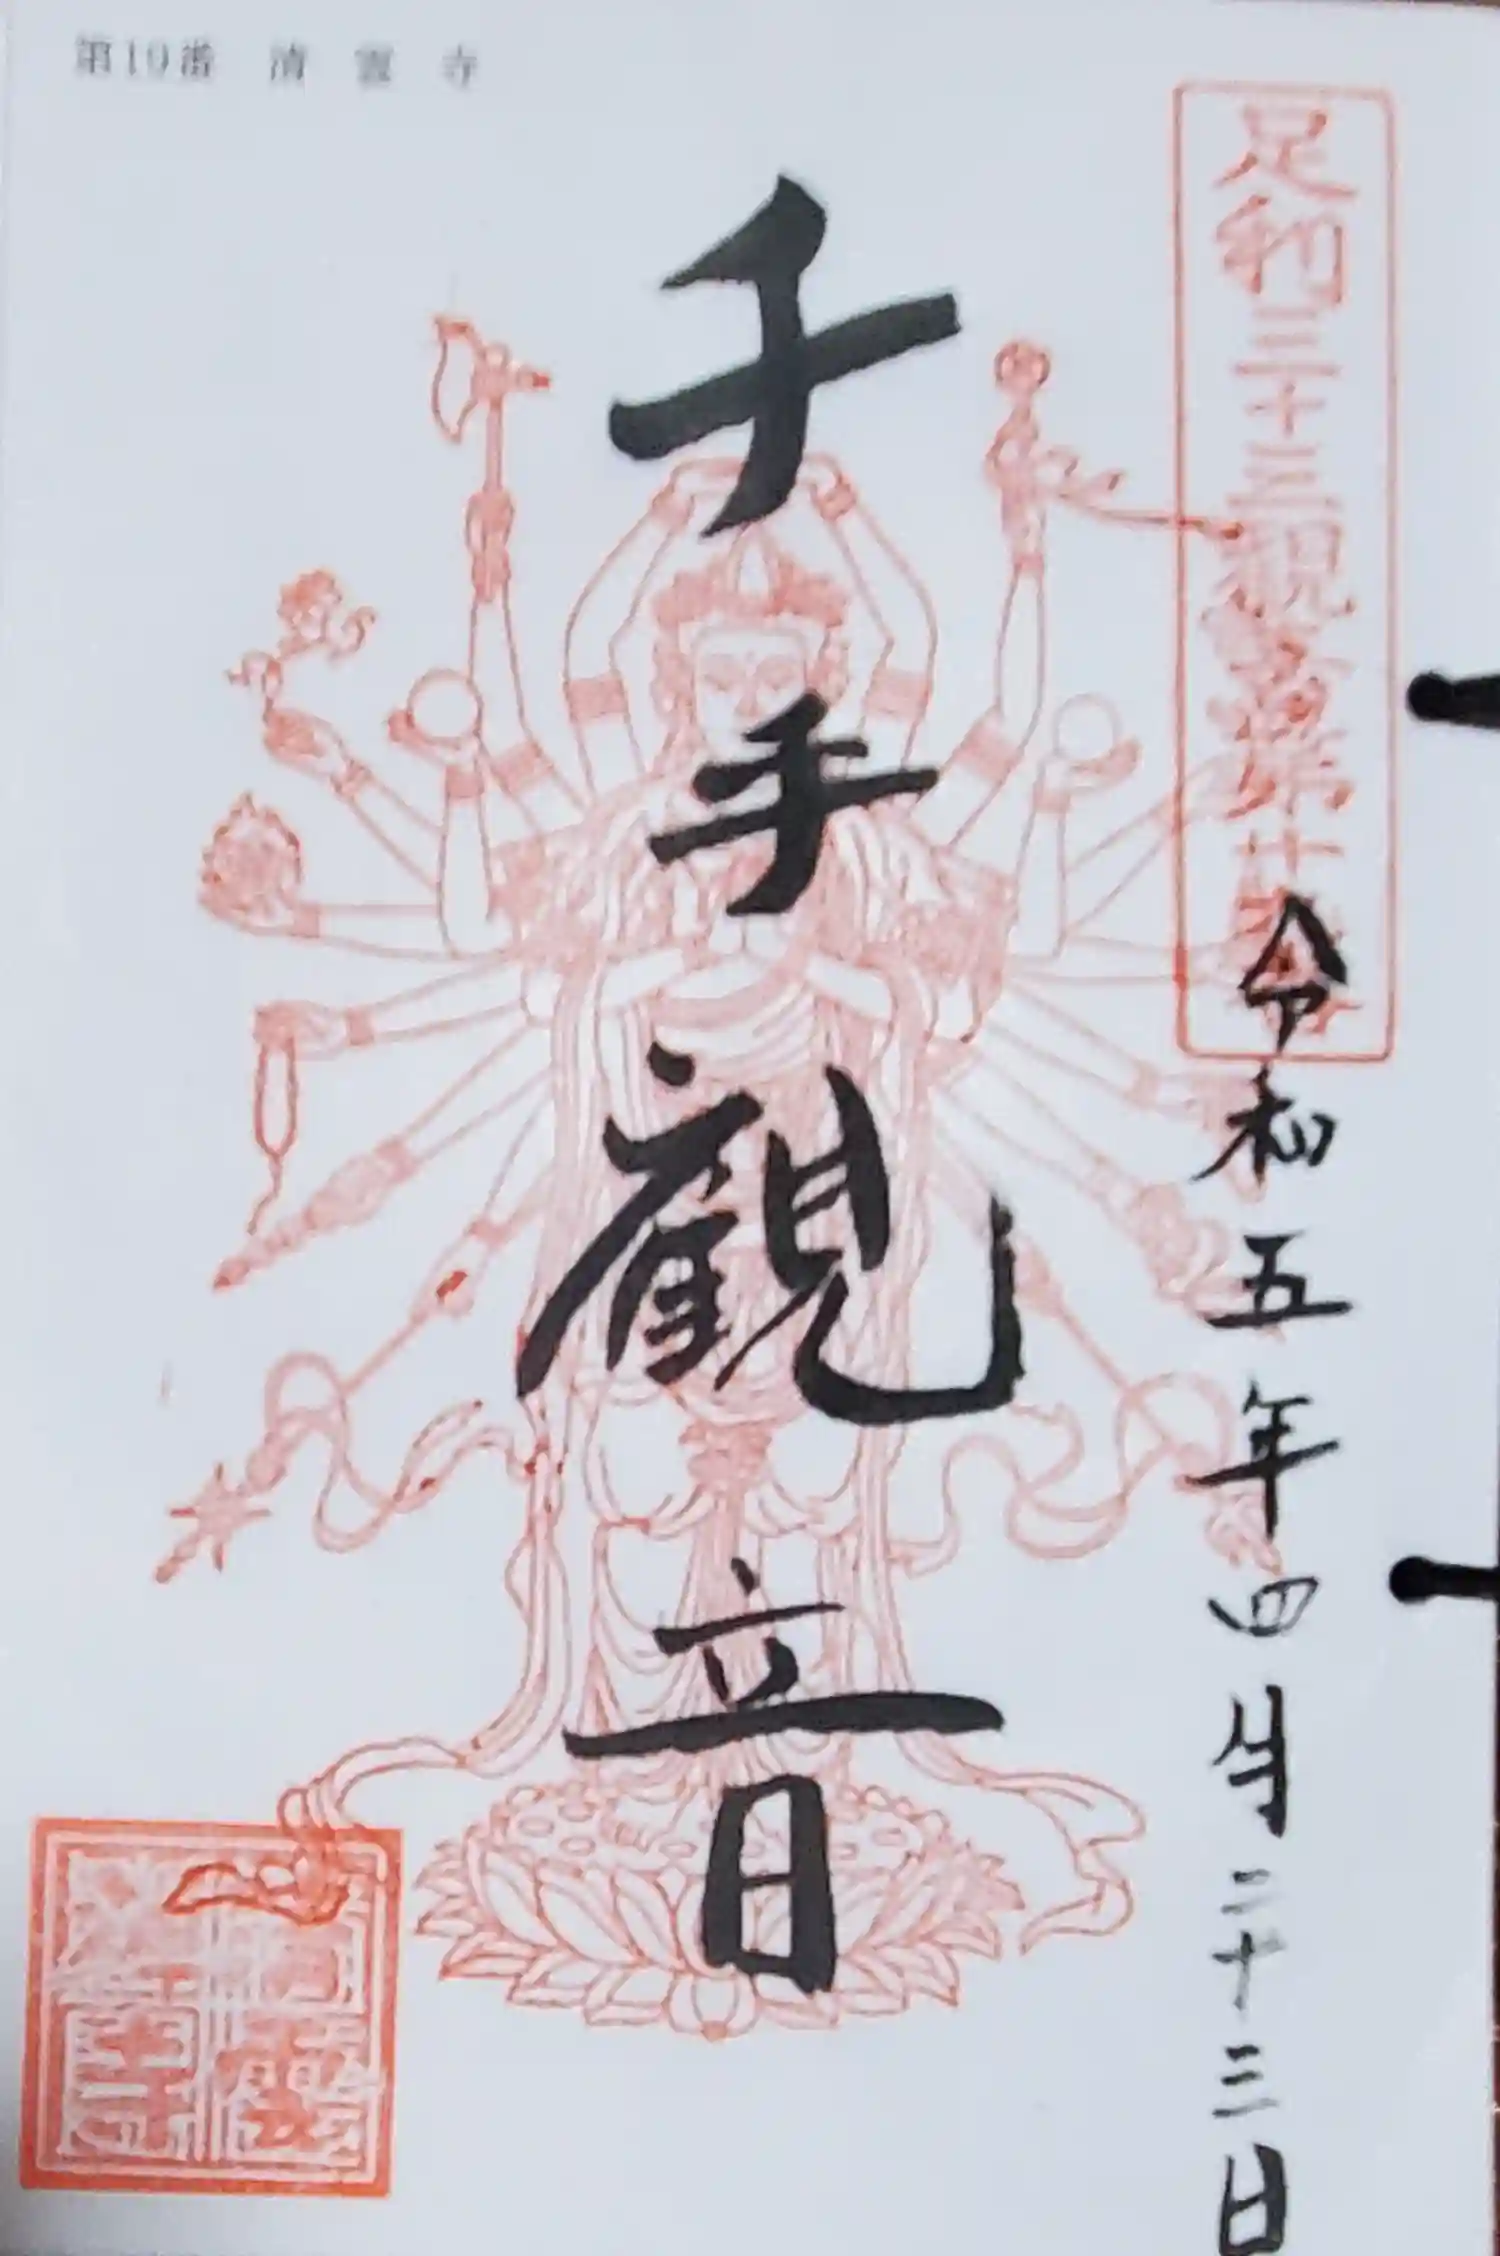 第19番　清雲寺
足利三十三観音第十九番
令和五年四月二十三日
千手觀音